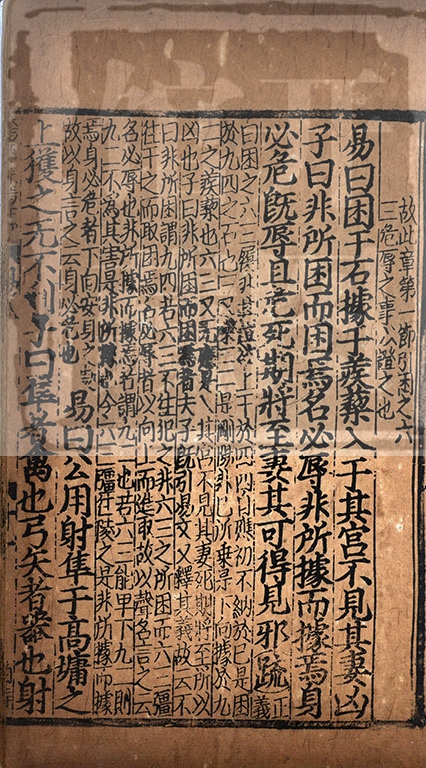 故此章第一節引困之六
三危辱之事以證之也
易曰困于石據于蒺藜入于其宮不見其妻凶
子曰非所困而困焉名必辱非所據而據焉身
必危旣辱且危死期將至妻其可得見邪疏正義
曰困之六三履非其欲上干於四四自應初不納於已是困
於九四之石也三又乘二二是剛陽非已所乘是下向據於九
二之蒺藜也六三又无應是入其宮不見其妻死期將至所以
凶也子曰非所困而困焉者夫子旣引易文又釋其義故云不
曰非所困謂九四若六三不往犯之非六三之所困而六三彊
往干之而取困焉名必辱者以向上而進取故以聲名言之云
名必辱也非所據而據焉者謂九二也若六三能卑下九二則
九二不為其害是非所據也今六三彊往陵之是非所據而據
焉身必危者下向安身之處
故以身言之云身必危也
易曰公用射隼于高墉之
上獲之无不利子曰隼者禽也弓矢者器也射